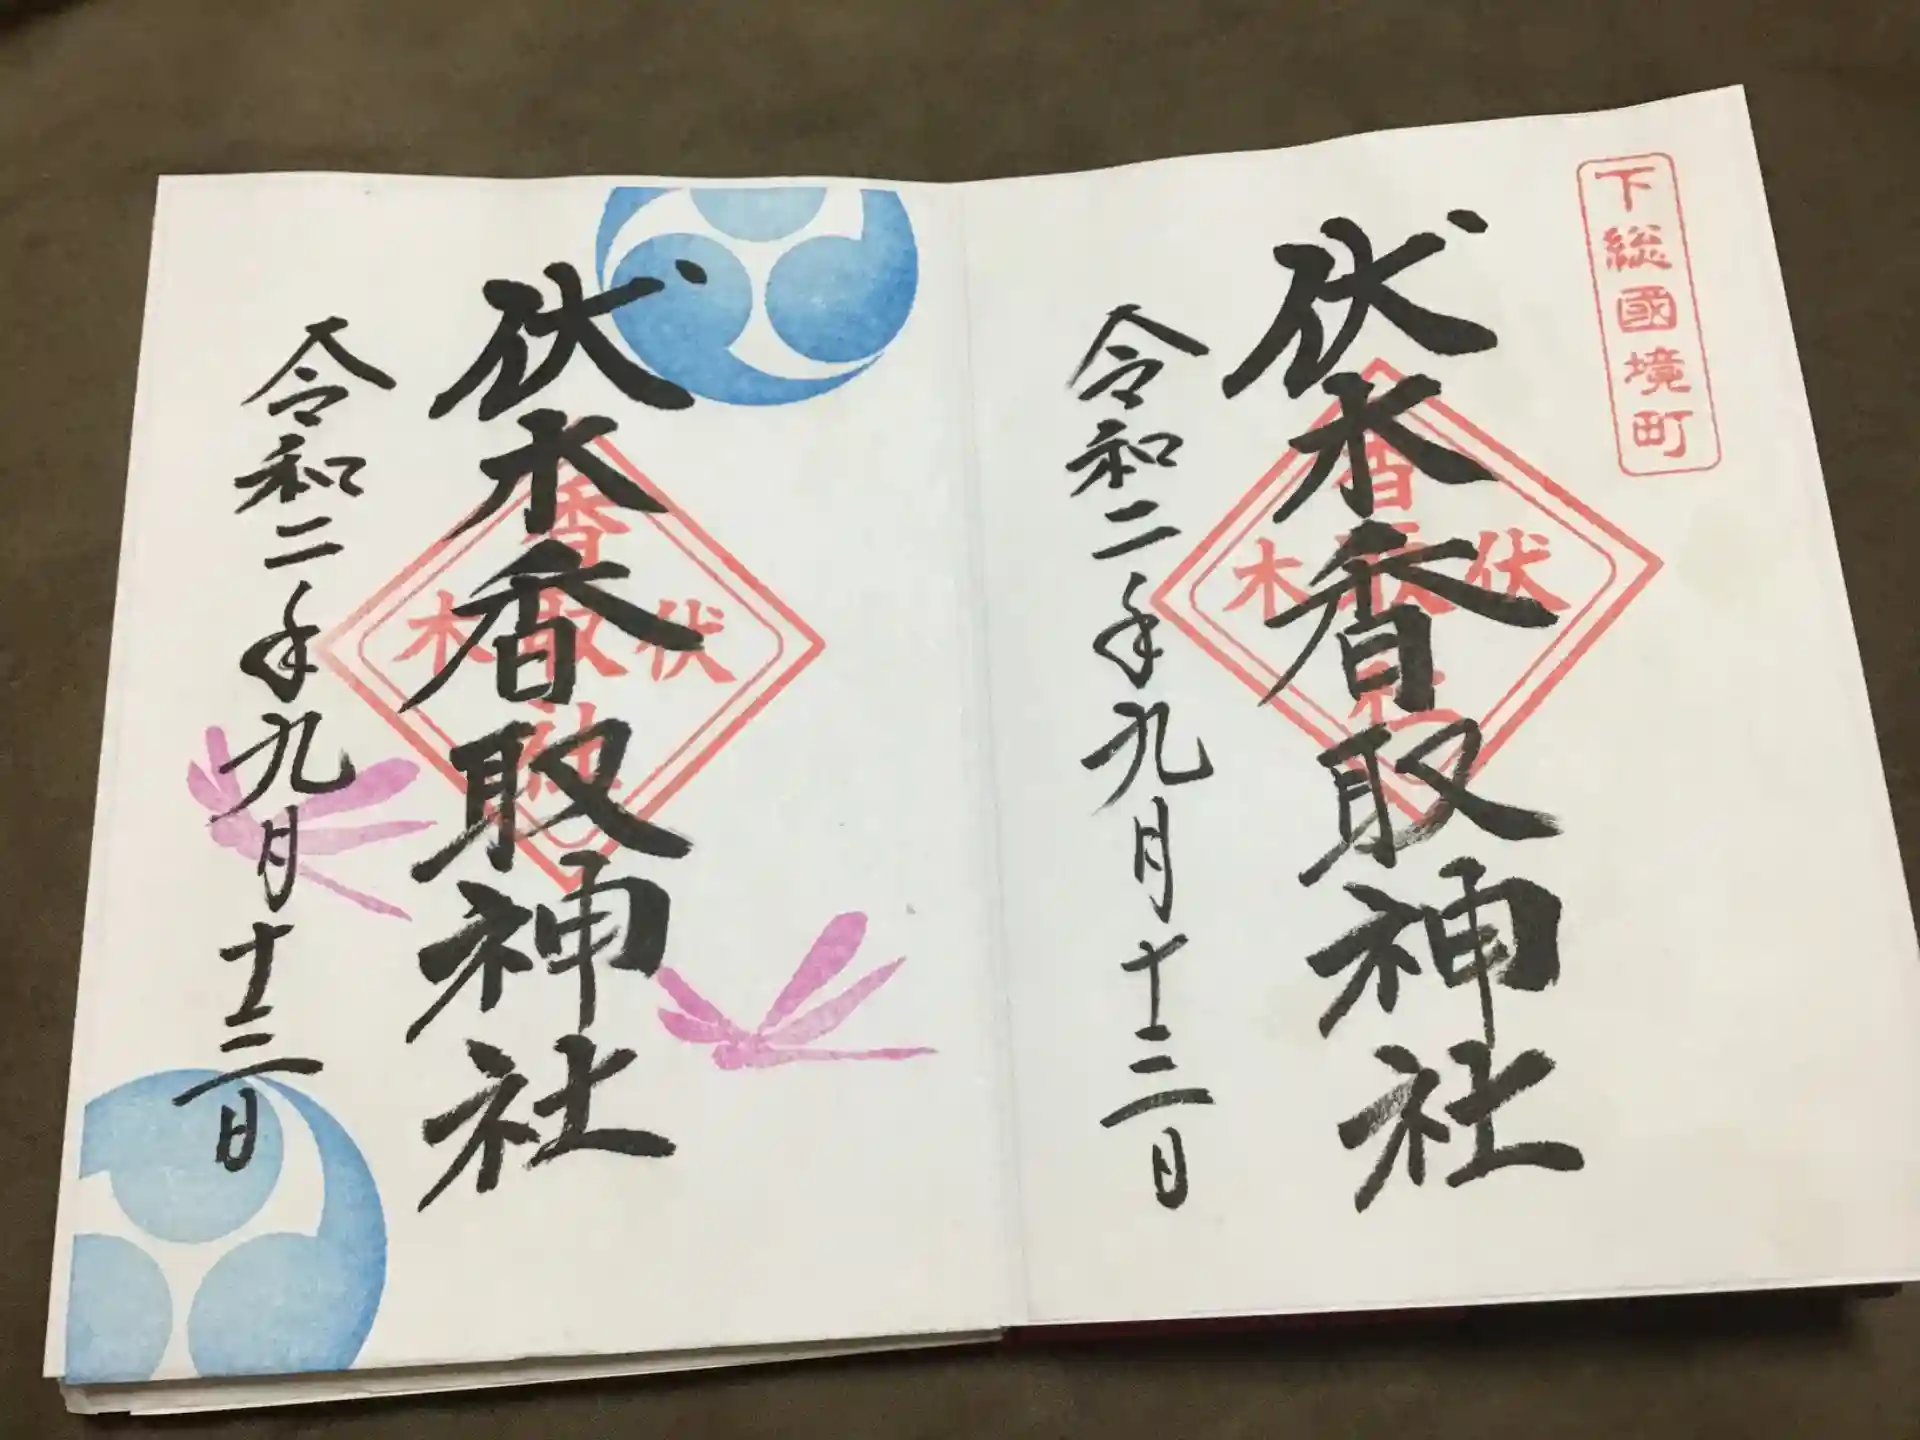 下総國境町
伏木香取神社
伏 香取神社 木
令和二年九月十三日
伏木香取神社
伏 香取神社 木
令和二年九月十三日